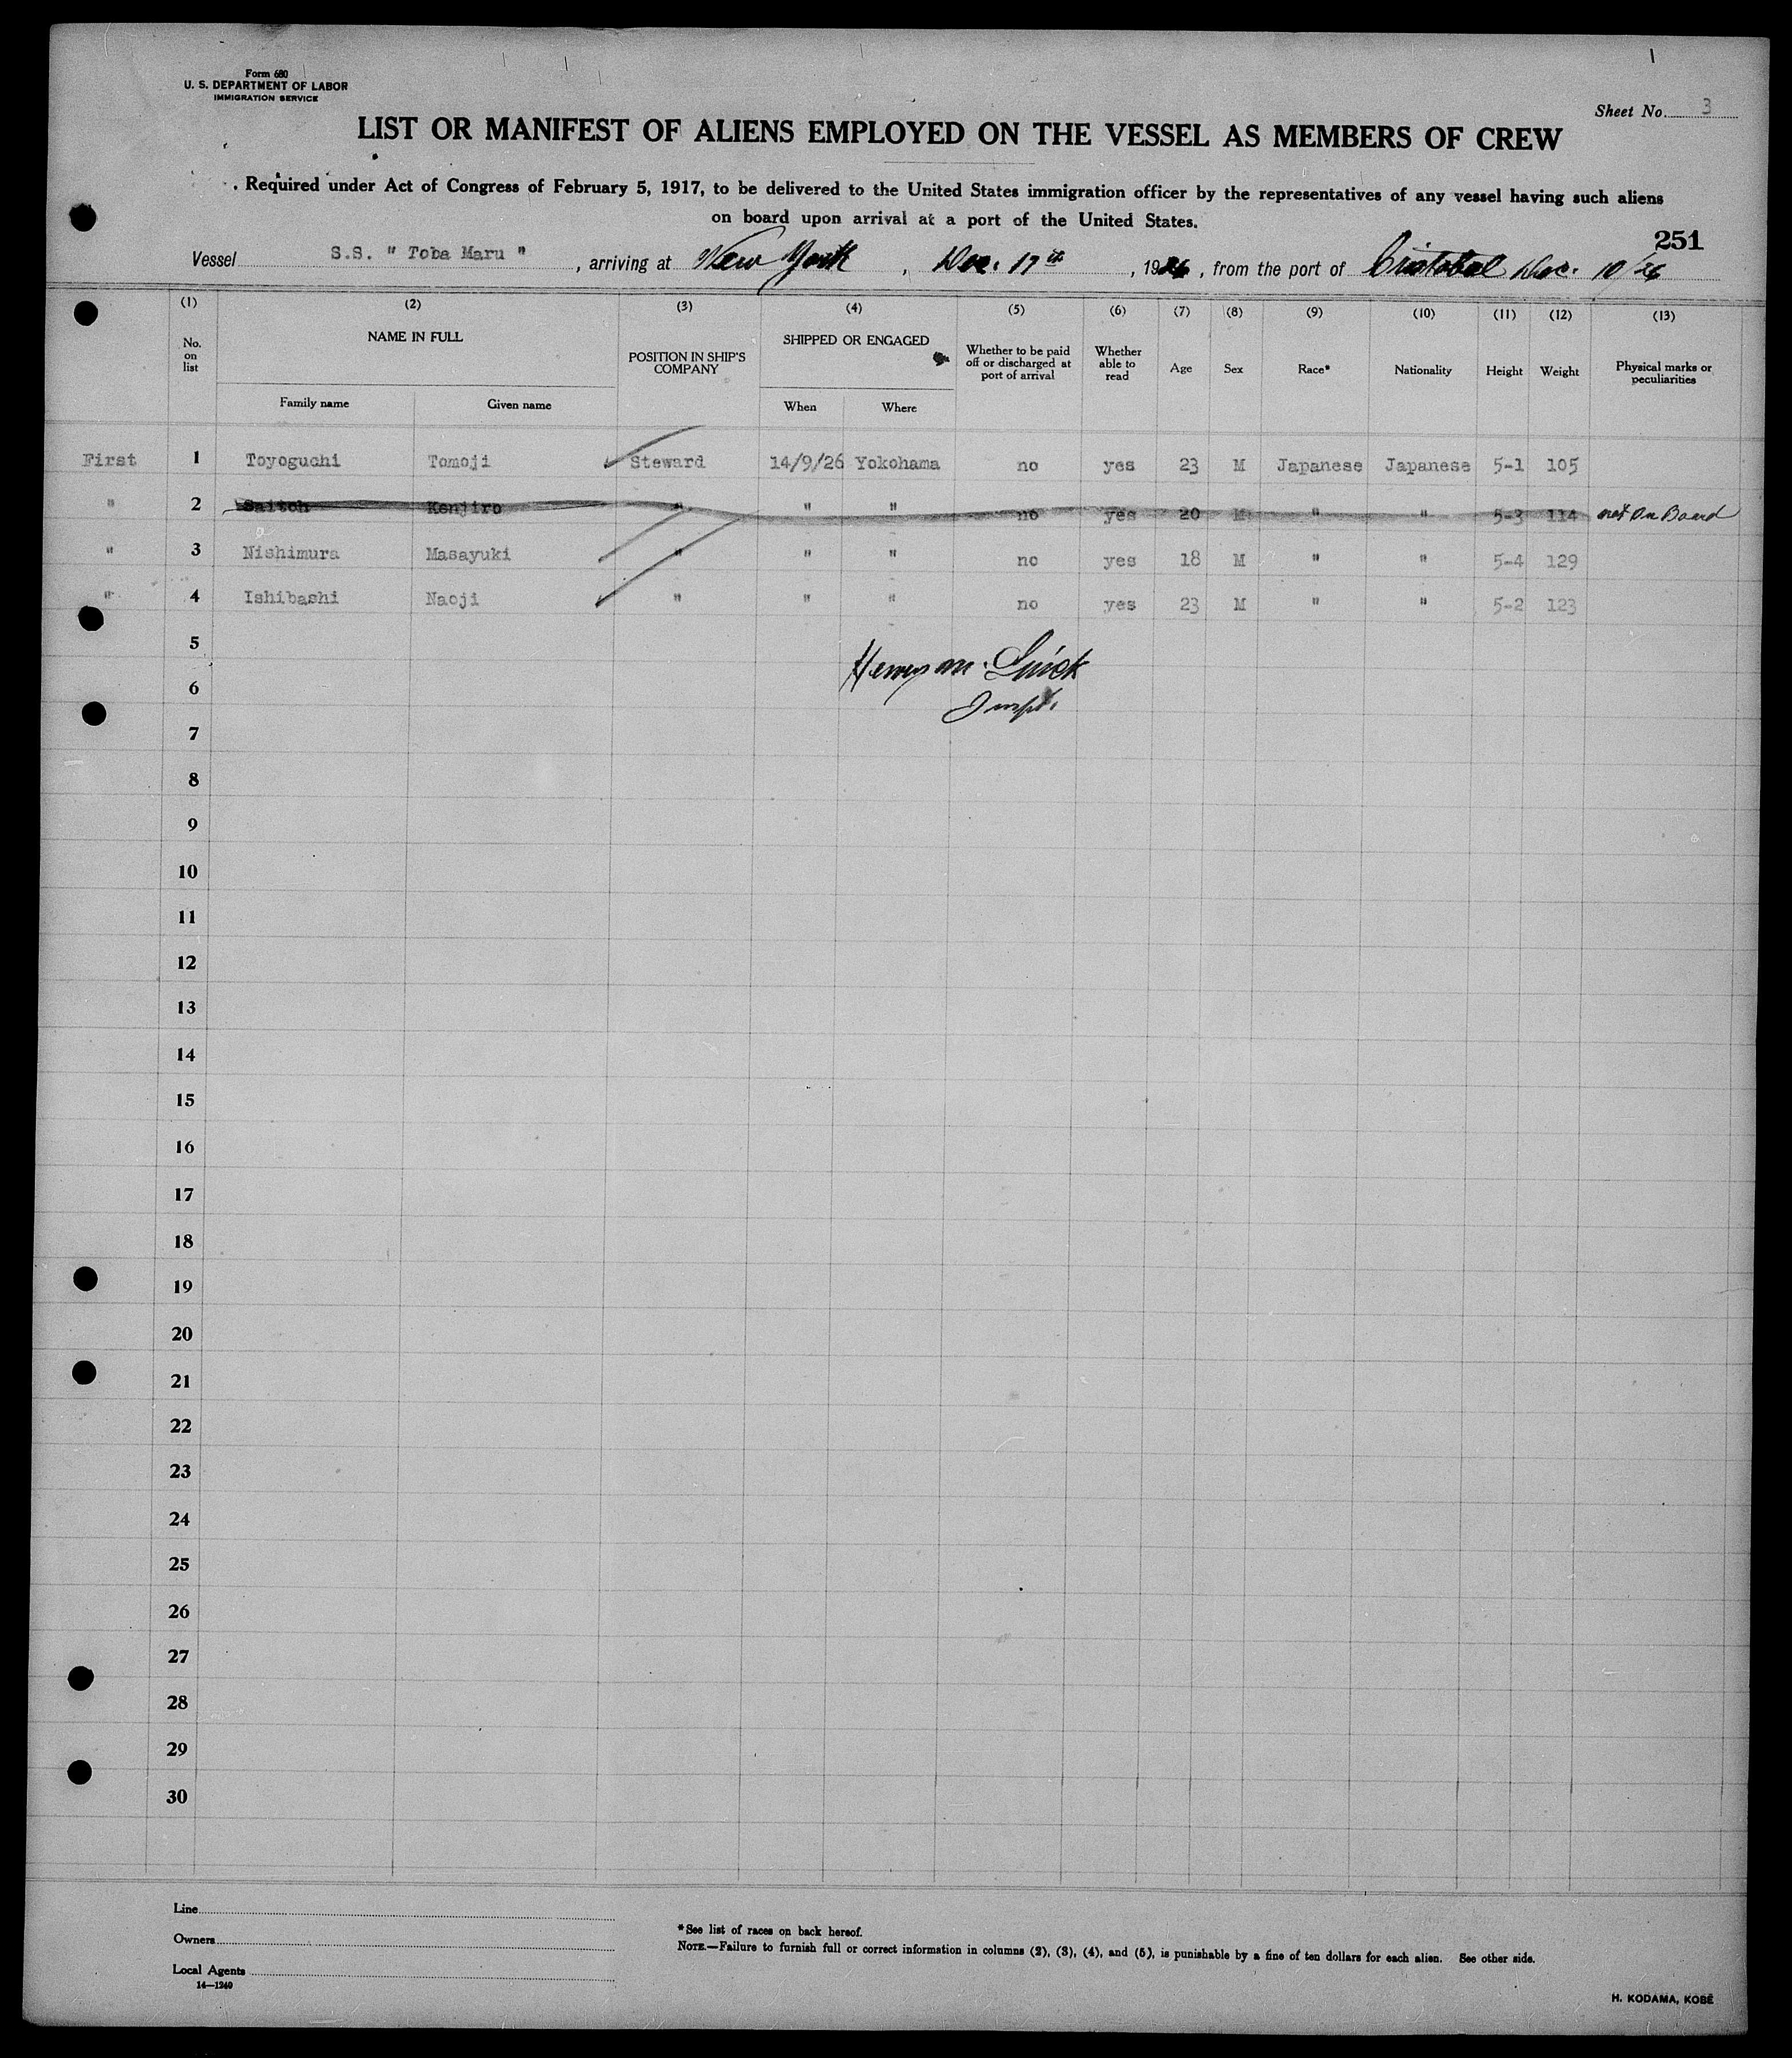 Form 680
U. S. DEPARTMENT OF LABOR
IMMIGRATION SERVICE
Sheet No. 3
LIST OR MANIFEST OF ALIENS EMPLOYED ON THE VESSEL AS MEMBERS OF CREW
Required under Act of Congress of February 5, 1917, to be delivered to the United States immigration officer by the representatives of any vessel having such aliens
on board upon arrival at a port of the United States.
251
Vessel S.S. " Toba Maru " , arriving at New York , Dec. 17th , 1926 , from the port of Cristobal Dec. 10/26
(1) (2) (3) (4) (5) (6) (7) (8) (9) (10) (11) (12) (13)
No. on list NAME IN FULL POSITION IN SHIP'S COMPANY SHIPPED OR ENGAGED Whether to be paid off or discharged at port of arrival Whether able to read Age Sex Race* Nationality Height Weight Physical marks or peculiarities
Family name Given name When Where
First 1 Toyoguchi Tomoji Steward 14/9/26 Yokohama no yes 23 M Japanese Japanese 5-1 105
" 2 Saitoh Kenjiro " " " no yes 20 M " " 5-3 114 not On Board
" 3 Nishimura Masayuki " " " no yes 18 M " " 5-4 129
" 4 Ishibashi Naoji " " " no yes 23 M " " 5-2 123
5
6
7
8
9
10
11
12
13
14
15
16
17
18
19
20
21
22
23
24
25
26
27
28
29
30
Line
Owners
Local Agents
14—1240
*See list of races on back hereof.
NOTE.—Failure to furnish full or correct information in columns (2), (3), (4), and (5), is punishable by a fine of ten dollars for each alien. See other side.
H. KODAMA, KOBE